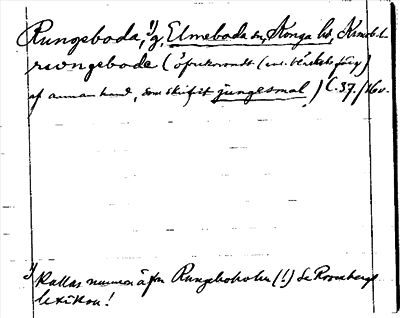 Rungeboda, 1) z, Elmeboda sn, Konga hd, Kronob. l.
rwngebode (öfverkorsadt (med bläckets färg)
af annan hand, som skrifvit jungesmal) C. 37. / Hov.
1) Kallas numera äfven Rungeboholm (!) Se Rosenbergs
lexikon!